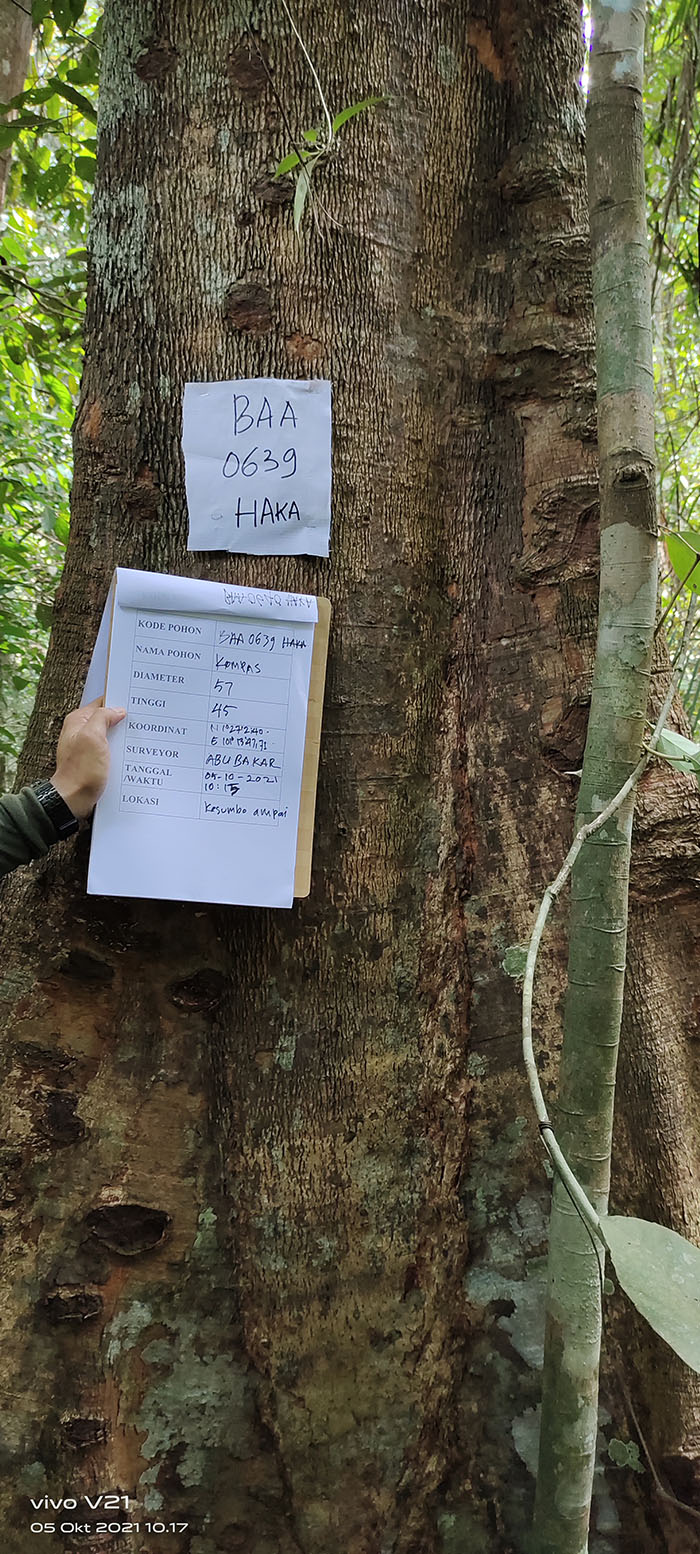 BAA
0639
HAKA
KODE POHON BAA 0639 HAKA
NAMA POHON Kompas
DIAMETER 57
TINGGI 45
KOORDINAT
SURVEYOR ABU BAKAR
TANGGAL 05-10-2021
/WAKTU 10:15
LOKASI Kesumbo ampai
vivo V21
05 Okt 2021 10.17